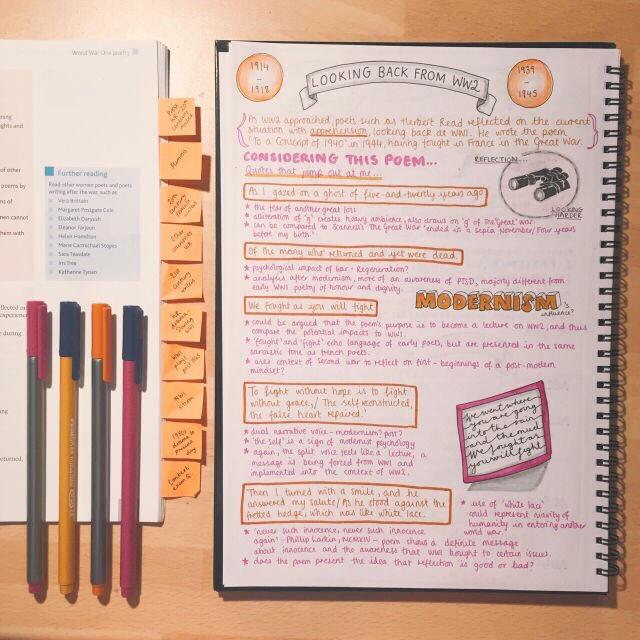 World War One poetry
Further reading
Read other women poets and poets
writing after the war, such as
Vera Brittain
Margaret Postgate Cole
Elizabeth Daryush
Eleanor Farjeon
Helen Hamilton
Marie Carmichael Stopes
Sara Teasdale
Iris Tree
Katharine Tynan
1914
-
1918
LOOKING BACK FROM WW2
1939
-
1945
As WW2 approached, poets such as Herbert Read reflected on the current
situation with apprehension, looking back at WW1. He wrote the poem
"To a Conscript of 1940" in 1944, having fought in France in the Great War.
CONSIDERING THIS POEM...
Quotes that jump out at me...
REFLECTION
LOOKING
HARDER
As I gazed on a ghost of five-and-twenty years ago
* the fear of another great loss
* alliteration of 'g' creates heavy ambience, also draws on 'g' of The 'Great' War.
* can be compared to Scannell's The Great War 'ended in a sepia November/ Four years
before my birth.'
Of the many who returned and yet were dead
* psychological impact of war - Regeneration?
* analysis after modernism, more of an awareness of PTSD, majorly different from
early WW1 poetry of honour and dignity.
We fought as you will fight
MODERNISM's
influence?
* could be argued that the poem's purpose is to become a lecture on WW2, and thus
compare the potential impacts to WW1.
* 'fought' and 'fight' echo language of early poets, but are presented in the same
sarcastic tone as trench poets.
* uses context of second war to reflect on first - beginnings of a post-modern
mindset?
To fight without hope is to fight
without grace,/ The self reconstructed,
the false heart repaired.'
* dual narrative voice - modernism? post?
* 'the self' is a sign of modernist psychology
* again, the split voice feels like a lecture, a
message is being forced from WW1 and
implemented into the context of WW2.
We went where
you are going
into the rain
and the mud
We fought as
you will fight
Then I turned with a smile, and he
answered my salute/ As he stood against the
fretted hedge, which was like white lace.
* use of 'white lace'
could represent naivity of
humanity in entering another
world war.
* 'never such innocence, never such innocence
again' - Phillip Larkin, MCMXIV - poem shows a definite message
about innocence and the awareness that WW1 bought to certain issues.
* does the poem present the idea that reflection is good or bad?